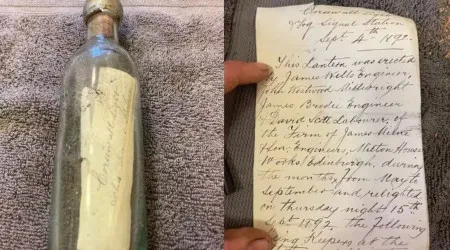 Corsewall
& Fog Signal Station
Sept 4th 1892
This Lantern was erected
by James Wells Engineer,
John Westwood Millwright
James Brodie Engineer
& David Scott Labourer, of
the Firm of James Milne
& Son, Engineers, Milton House
Works, Edinburgh, during
the months from May to
September and relighted
on Thursday night 15th
Sept 1892, the following
being Keepers at the